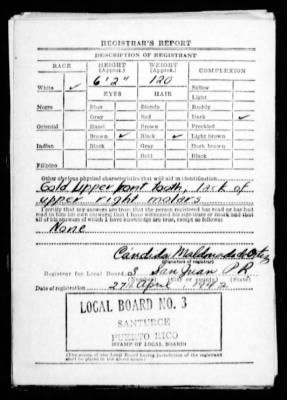 REGISTRAR'S REPORT
DESCRIPTION OF REGISTRANT
RACE HEIGHT (Approx.) WEIGHT (Approx.) COMPLEXION
6'2" 120
White ✓ EYES HAIR Sallow
Light
Negro Blue Blonde Ruddy
Gray Red Dark ✓
Oriental Hazel Brown Freckled
Brown ✓ Black ✓ Light brown
Indian Black Gray Dark brown
Bald Black
Filipino
Other obvious physical characteristics that will aid in identification
Gold Upper front tooth, lack of
upper right molars
I certify that my answers are true; that the person registered has read or has had
read to him his own answers; that I have witnessed his signature or mark and that
all of his answers of which I have knowledge are true, except as follows:
None
Candida Maldonado
(Signature of registrar)
Registrar for Local Board 3 San Juan P.R.
(Number) (City or county) (State)
Date of registration 27th April, 1942
LOCAL BOARD NO. 3
SANTURCE
PUERTO RICO
STAMP OF LOCAL BOARD
(The stamp of the Local Board having jurisdiction of the registrant
shall be placed in the above space.)